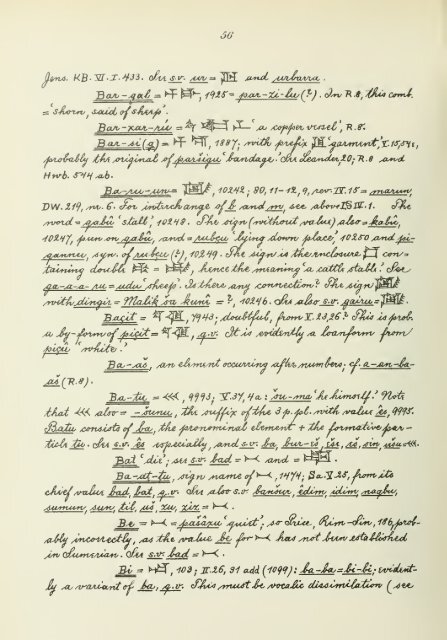 56
Jens. KB. VI. I. 433. See s.v. ur = and urbarra.
Bar-gal = , 1925 = par-zi-lu (?). In R.8, this comb.
= 'shorn, said of sheep'.
Bar-xar-rú = 'a copper vessel', R.8.
Bar-si(g) = , 1887; with prefix 'garment', V.15,
probably the original of paršigu 'bandage'. See Leander, 20; R.8 and
Hwb. 544 ab.
Ba-ru-un = , 10242; 80, 11-12, 9, rev. IV. 15 = marun,
DW. 219, nr. 6. For interchange of b and m, see above The
word = gabû 'stall', 10248. The sign (without value) also = kabû,
10247, pun on gabû, and = rubçu 'lying down place', 10250 and pi-
gannru, syn. of rubçu (?), 10249. The sign is the enclosure con=
taining double = , hence the meaning 'a cattle stable'. See
ga-a-a-ru = udu 'sheep'. Is there any connection? The sign
with dingir = Malik ša kunî = ?, 10246. See also s.v. gairu =
Baçit = , 7943; doubtful, from V. 23, 26? This is prob.
a by-form of piçit = , q.v. It is evidently a loanform from
piçû 'white'.
Ba-aš, an element occurring after numbers; cf. a-an-ba-
aš (R.8).
Ba-tu = , 9993; V.37, 4a: šu-ma 'he himself'. Note
that also = -šunu, the suffix of the 3 p. pl. with value eš, 9995.
Batu consists of ba, the pronominal element + the formative par-
ticle tu. See s.v. eš especially, and s.v. ba, bur-iš, sin,
Bat 'die'; see s.v. bad = and =
Ba-at-tu, sign name of , 1474; Sa. V. 25, from its
chief value bad, bat, q.v. See also s.v. banšur, êdim, idim, nagbu,
sumun, sun, til, uš, zu, ziz =
Be = = pašâxu 'quiet', so Price, Rim-Sin, 186, prob-
ably incorrectly, as the value be for has not been established
in Sumerian. See s.v. bad =
Bi = , 103; II. 26, 31 add (1099): ba-ba = bi-bi; evident-
ly a variant of ba, q.v. This must be vocalic dissimilation (see